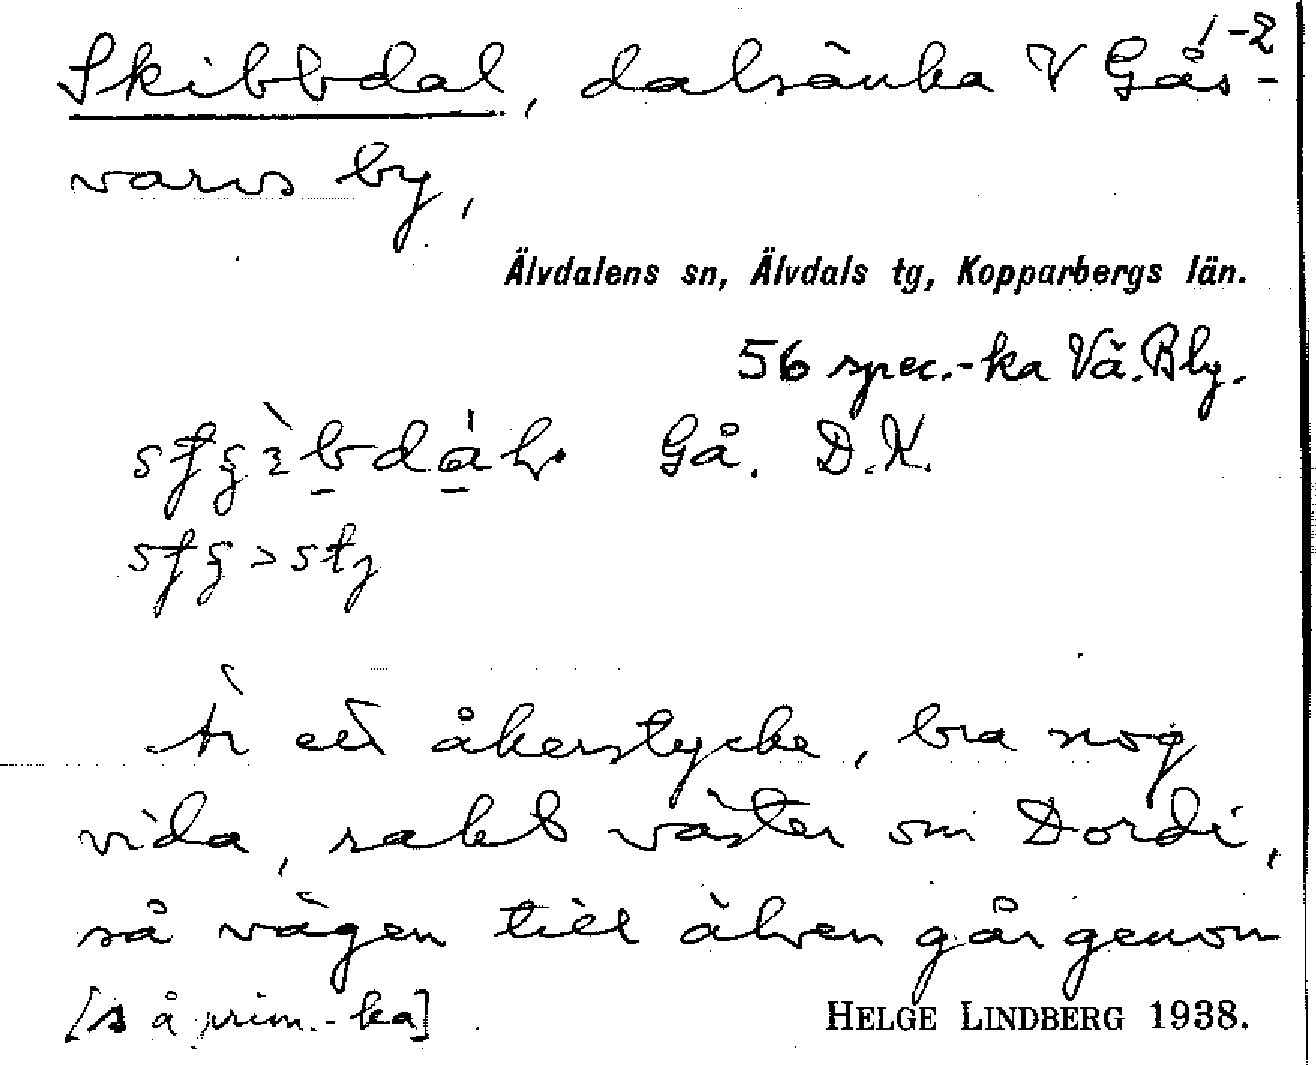 1-2
Skibbdal, dalsänka V Gås-
varvs by,
Älvdalens sn, Älvdals tg, Kopparbergs län.
56 spec.-ka Vä. Bly.
Gå. D.K.
Är ett åkerstycke, bra nog
vida, rakt väster om Dordi,
så vägen till älven går genom
[s å prim.-ka]
HELGE LINDBERG 1938.